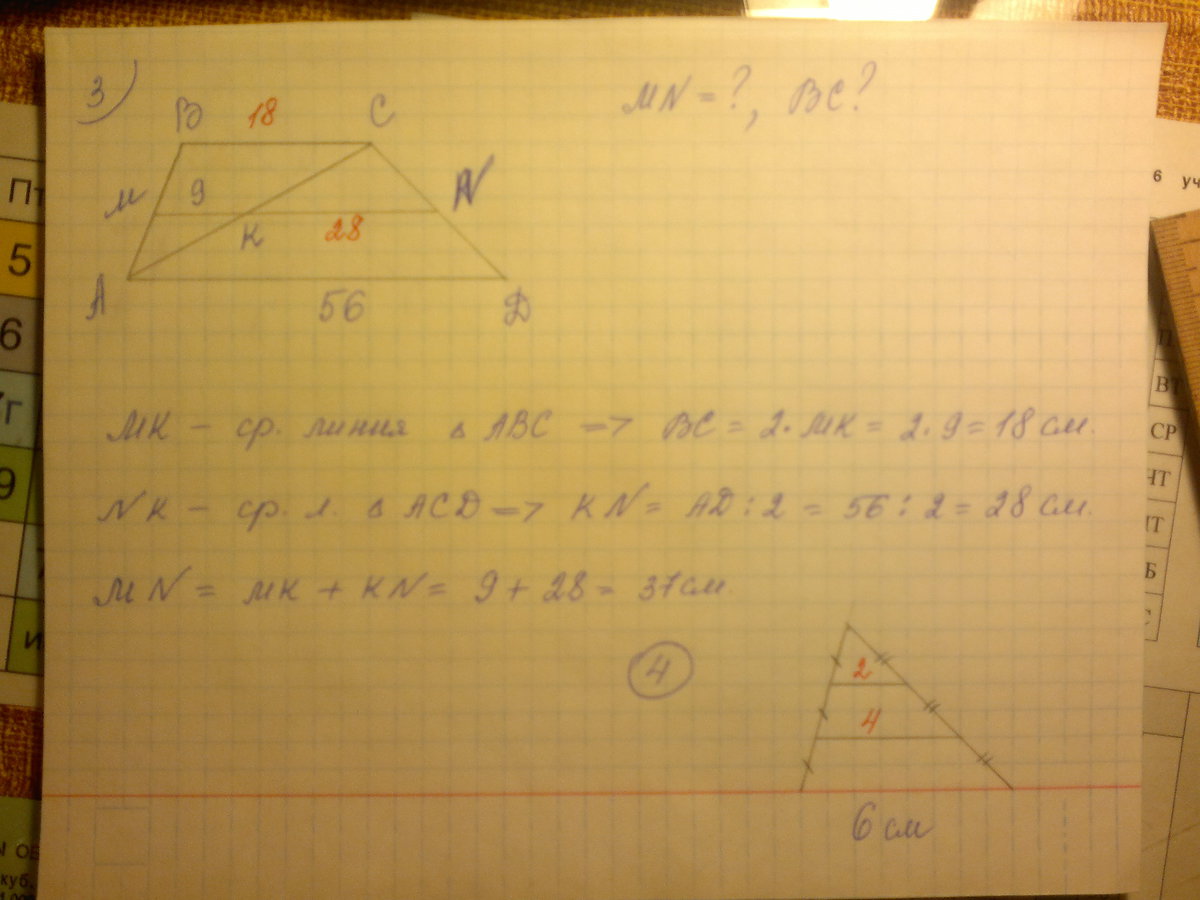 3)
MN = ?, BC?
B 18 C
M 9 N
K 28
A 56 D
MK – ср. линия △ ABC => BC = 2·MK = 2·9 = 18 см.
NK – ср. л. △ ACD => KN = AD : 2 = 56 : 2 = 28 см.
MN = MK + KN = 9 + 28 = 37 см.
4
2
4
6 см
Пт
5
6
г
9
и
куб.
6 уч
ВТ
СР
ЧТ